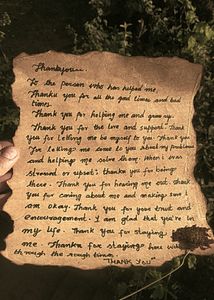 Thankyou
To the person who has helped me,
Thank you for all the good times and bad
times.
Thank you for helping me and grow up.
Thank you for the love and support. Thank
you for letting me be myself to you. Thank you
for letting me come to you about my problems
and helping me solve them. When i was
stressed or upset, thanks you for being
there. Thank you for hearing me out. thank
you for caring about me and making sure i
am okay. Thank you for your trust and
encouragement. I am glad that you're in
my life. Thank you for staying
me. Thanks for staying here with
through the rough times.
"THANK YOU"